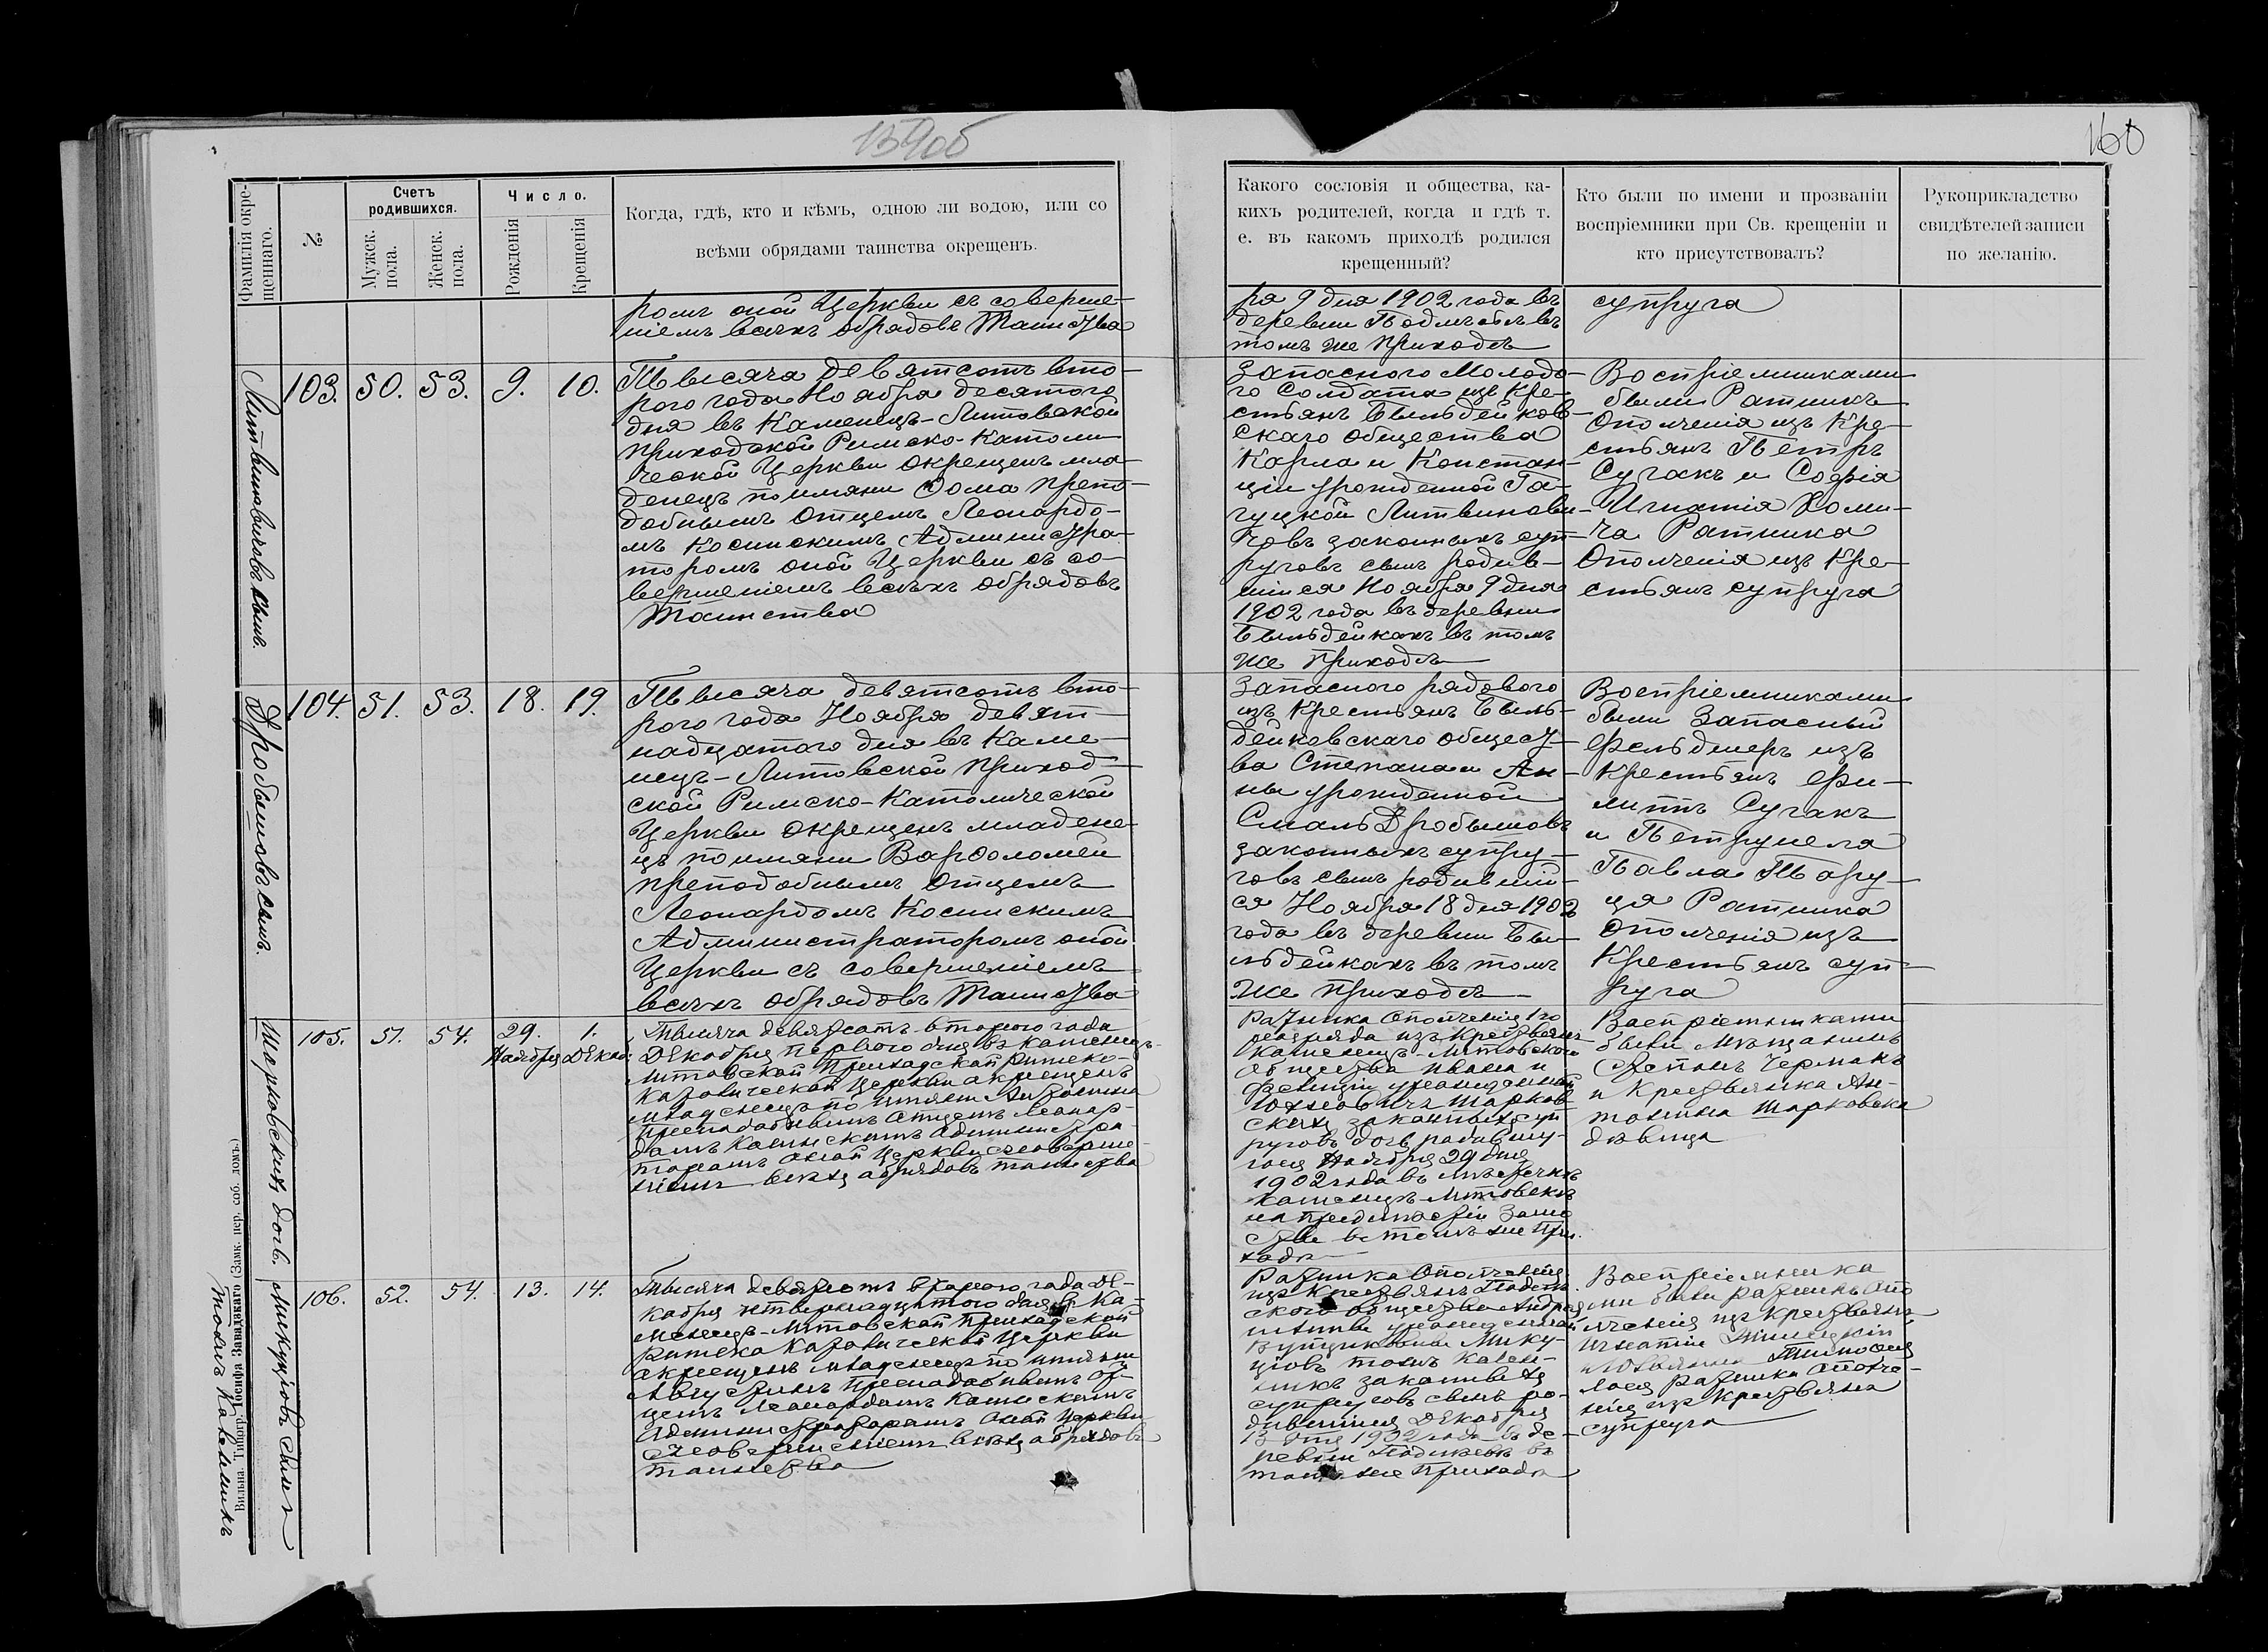 159об
160
Фамилія окре-
щеннаго.
№
Счетъ
родившихся.
Мужск.
пола.
Женск.
пола.
Число.
Рожденія
Крещенія
Когда, гдѣ, кто и кѣмъ, одною ли водою, или со
всѣми обрядами таинства окрещенъ.
Какого сословія и общества, ка-
кихъ родителей, когда и гдѣ т.
е. въ какомъ приходѣ родился
крещенный?
Кто были по имени и прозваніи
воспріемники при Св. крещеніи и
кто присутствовалъ?
Рукоприкладство
свидѣтелей записи
по желанію.
ромъ оной Церкви съ соверше-
ніемъ всѣхъ обрядовъ Таинства
ря 9 дня 1902 года въ
деревни въ
томъ же приходѣ
супруга
Литвиновичовъ сынъ.
103. 50. 53. 9. 10.
Тысяча девятсотъ вто-
рого года Ноября десятого
дня въ Каменецъ-Литовской
приходской Римско-Католи
ческой Церкви окрещенъ мла-
денецъ поимяни Ѳома препо-
добнымъ отцемъ Леонардо-
мъ Косинскимъ Администра-
торомъ оной Церкви съ со-
вершеніемъ всѣхъ обрядовъ
Таинства
Запасного Молодо-
го Солдата изъ Кре-
стьянъ Быльдейков-
скаго общества
Карла и Констан-
ціи урожденной Га-
гуцкой Литвинови-
човъ законныхъ суп-
руговъ сынъ родив-
шійся Ноября 9 дня
1902 года въ деревни
Быльдейкахъ въ томъ
же приходѣ
Воспріемниками
были Ратникъ
Ополченія изъ Кре-
стьянъ Петръ
Сугакъ и Софія
Игнатія Хоми-
ча Ратника
Ополченія изъ Кре-
стьянъ супруга
Дробышовъ сынъ.
104. 51. 53. 18. 19.
Тысяча девятсотъ вто-
рого года Ноября девят-
надцатого дня въ Каме-
нецъ-Литовской приход-
ской Римско-Католической
Церкви окрещенъ младене-
цъ поимяни Варѳоломей
преподобнымъ отцемъ
Леонардомъ Косинскимъ
Администраторомъ оной
Церкви съ совершеніемъ
всѣхъ обрядовъ Таинства
Запасного рядового
изъ Крестьянъ Быль-
дейковскаго общест-
ва Степана и Ан-
ны урожденной
Смаль Дробышовъ
законныхъ супру-
говъ сынъ родившій-
ся Ноября 18 дня 1902
года въ деревни Бы-
льдейкахъ въ томъ
же приходѣ
Воспріемниками
были Запасный
Фельдшеръ изъ
Крестьянъ Фи-
липпъ Сугакъ
и Петрунеля
Павла Тару-
ця Ратника
Ополченія изъ
Крестьянъ суп-
руга
Шарковскихъ дочь.
105. 51. 54. 29. 1.
Ноября Декаб:
Тысяча девятсотъ второго года
Декабря перваго дня въ Каменецъ-
Литовской Приходской Римско-
Католической Церкви окрещенъ
младенецъ по имяни Антонина
Преподобнымъ Отцемъ Леонар-
домъ Косинскимъ Администра-
торомъ оной Церкви съ соверше-
ніемъ всѣхъ обрядовъ таинства
Ратника Ополченія 1го
розряда изъ Крестьянъ
Каменецъ-Литовскаго
общества Ивана и
урожденной
Шарков-
скихъ законныхъ суп
руговъ дочь родившу-
юся Ноября 29 дня
1902 года въ мѣстечкѣ
Каменецъ-Литовскъ
на предмѣстіи Замо
въ томъ же при-
ходѣ
Воспріемниками
были Мѣщанинъ
Чермакъ
и Крестьянка Ан-
тонина Шарковска
дѣвица
Микуцовъ сынъ
106. 52. 54. 13. 14.
Тысяча девятсотъ второго года Де-
кабря четырнадцатого дня въ Ка-
менецъ-Литовской Приходской
Римско Католической Церкви
окрещенъ младенецъ по имяни
Августинъ Преподобнымъ От-
цемъ Леонардомъ Косинскимъ
Администраторомъ оной Церкви
съ совершеніемъ всѣхъ обрядовъ
таинства
Ратника Ополченія
изъ Крестьянъ
ского общества Андрея
урожденной
Мику-
цовъ
законныхъ
супруговъ сынъ ро-
дившійся Декабря
13 дня 1902 года въ де-
ревни въ
томъ же приходѣ
Воспріемника
ми были Ратникъ Опо
лченія изъ Крестьянъ
Игнатій
Ратника Ополче-
нія изъ Крестьянъ
супруга
Вильна. Типогр. Іосифа Завадзкаго (Замк. пер. соб. домъ.)